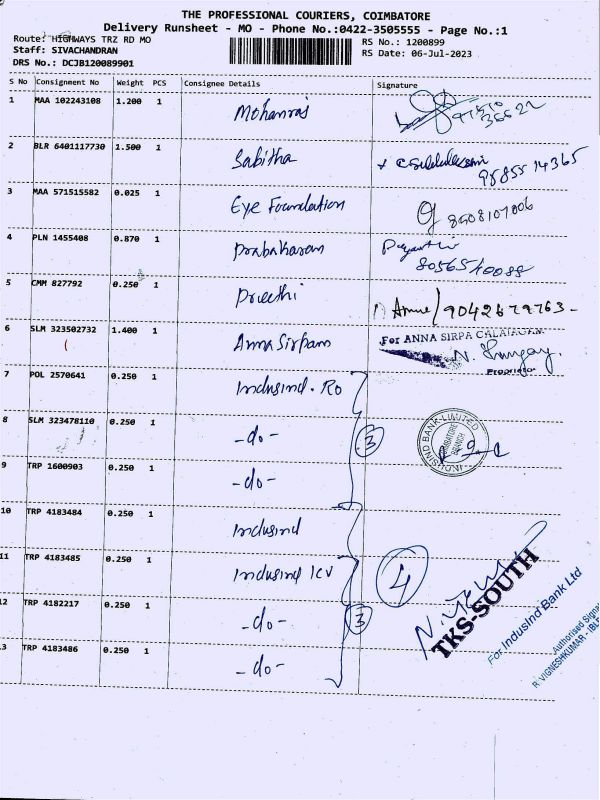 THE PROFESSIONAL COURIERS, COIMBATORE
Delivery Runsheet - MO - Phone No.:0422-3505555 - Page No.:1
Route: HIGHWAYS TRZ RD MO
RS No.: 1200899
Staff: SIVACHANDRAN
RS Date: 06-Jul-2023
DRS No.: DCJB120089901
S No Consignment No Weight PCS Consignee Details Signature
1 MAA 102243108 1.200 1 Mohanraj
2 BLR 6401117730 1.500 1 Sabitha 95855 14365
3 MAA 571515582 0.025 1 Eye Foundation 8508107006
4 PLN 1455408 0.870 1 Prabakaran
5 CMM 827792 0.250 1 Preethi
6 SLM 323502732 1.400 1 Anna Sirpam For ANNA SIRPA CALAIAGAM
Proprietor
7 POL 2570641 0.250 1 Indusind. RO
8 SLM 323478110 0.250 1 -do- 3 INDUSIND BANK LIMITED
COIMBATORE BRANCH
9 TRP 1600903 0.250 1 -do-
10 TRP 4183484 0.250 1 Indusind
11 TRP 4183485 0.250 1 Indusind ICV 4
12 TRP 4182217 0.250 1 -do- 3
3 TRP 4183486 0.250 1 -do-
TKS-SOUTH
For IndusInd Bank Ltd
Authorised
R. VIGNESHKUMAR - IBL